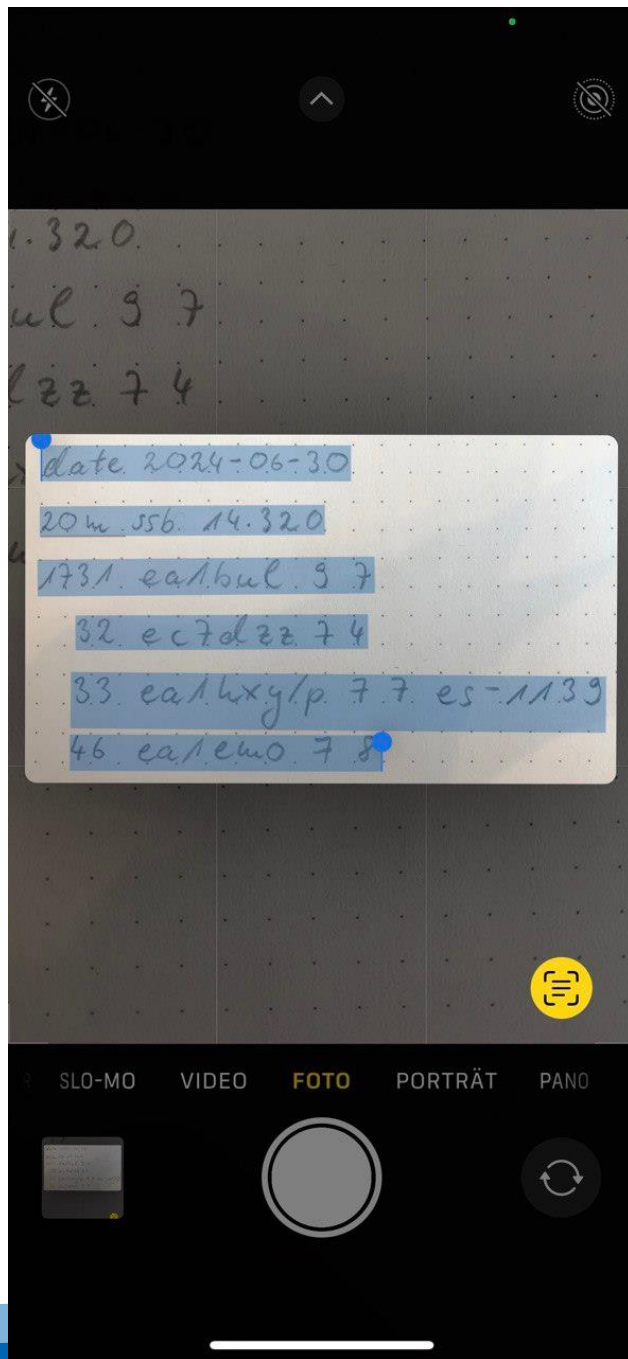 1.320
ul 9 7
lzz 74
date 2024-06-30
20m ssb 14.320
1731 ea1bul 9 7
32 ec7dzz 7 4
33 ea1hxy/p 7 7 es-1139
46 ea1emo 7 8
SLO-MO VIDEO FOTO PORTRÄT PANO